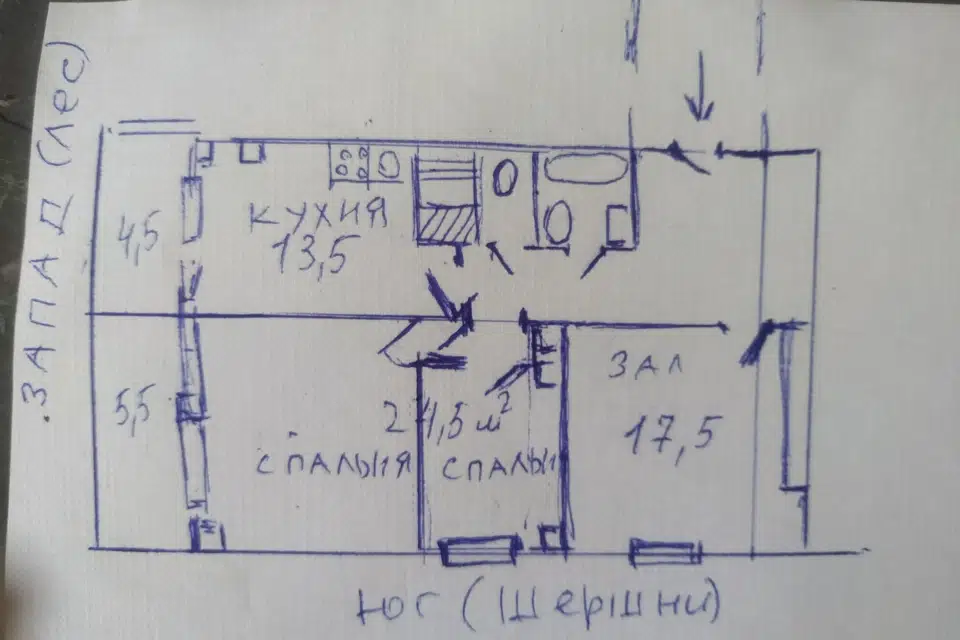 .ЗАПАД (лес)
4,5
КУХНЯ
13,5
5,5
ЗАЛ
17,5
21,5 м²
СПАЛЬНЯ
СПАЛЬН
ЮГ (Шершни)